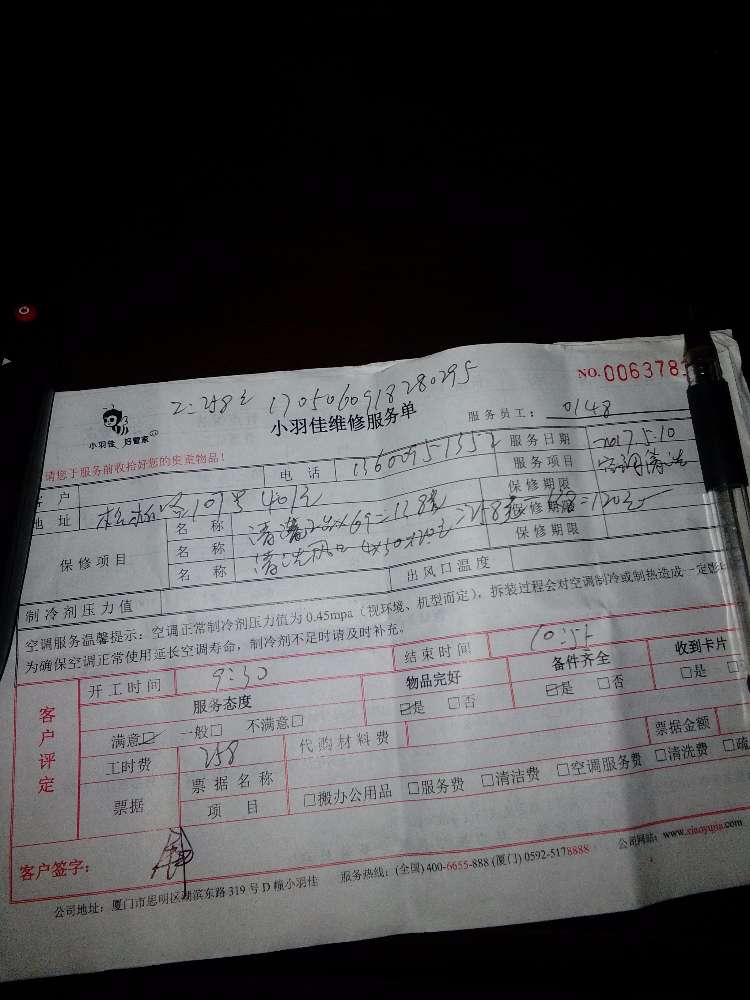 NO. 0063781
2=258元 1705060918280295
小羽佳 好管家
小羽佳维修服务单
服务员工: 0148
请您于服务前收拾好您的贵重物品!
客户 电话 服务日期 2017.5.10
地址 107号 401 服务项目 空调清洗
保修项目 名称 保修期限
名称 保修期限
名称 保修期限
制冷剂压力值 出风口温度
空调服务温馨提示:空调正常制冷剂压力值为0.45mpa(视环境、机型而定),拆装过程会对空调制冷或制热造成一定影
为确保空调正常使用延长空调寿命,制冷剂不足时请及时补充。
客户评定
开工时间 9:30 结束时间
服务态度 物品完好 备件齐全 收到卡片
满意☑ 一般□ 不满意□ ☑是 □否 ☑是 □否 □是
工时费 258 代购材料费
票据 票据名称 票据金额
项目 □搬办公用品 □服务费 □清洁费 □空调服务费 □清洗费 □疏
客户签字:
公司地址:厦门市思明区湖滨东路319号D幢小羽佳 服务热线:(全国)400-6655-888 (厦门)0592-5178888 公司网站:www.xiaoyujia.com